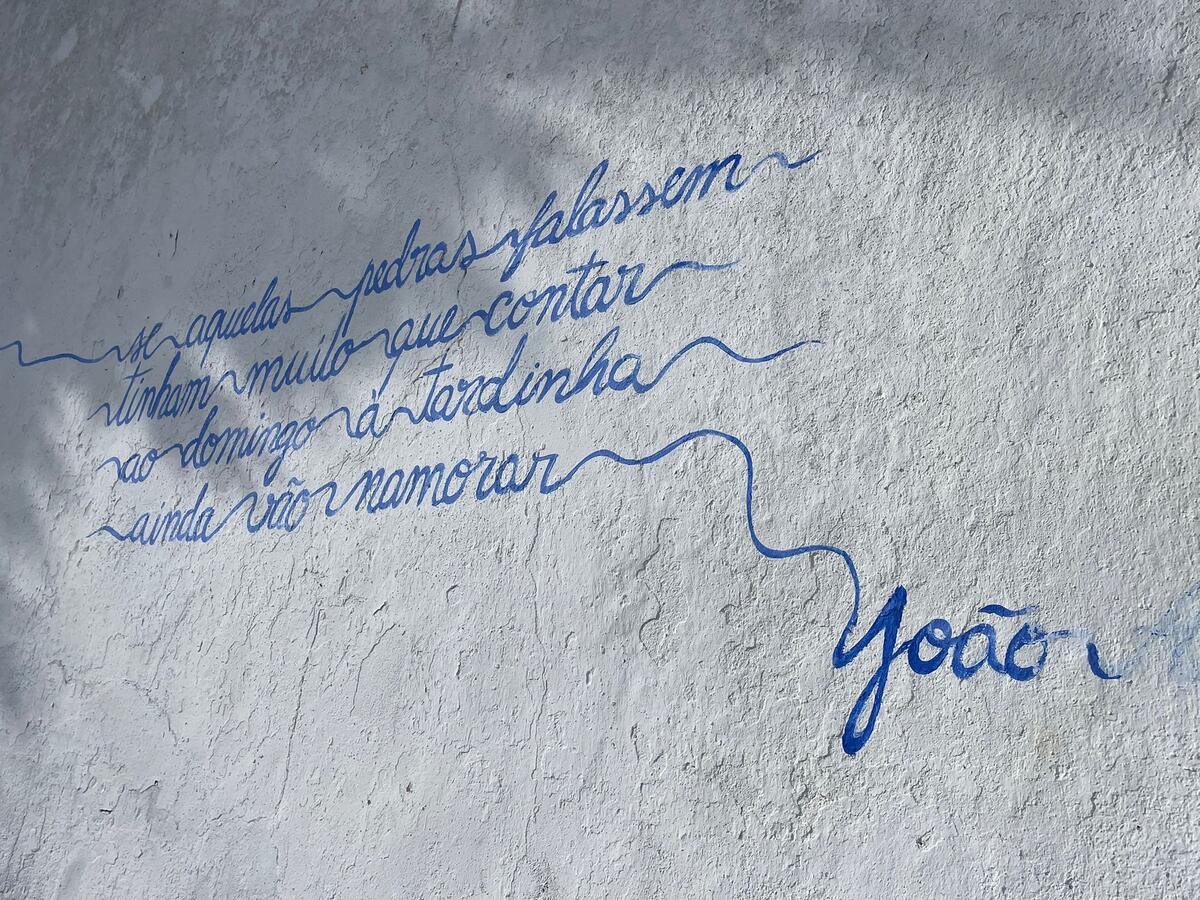 se aquelas pedras falassem
tinham muito que contar
ao domingo á tardinha
ainda vão namorar
João